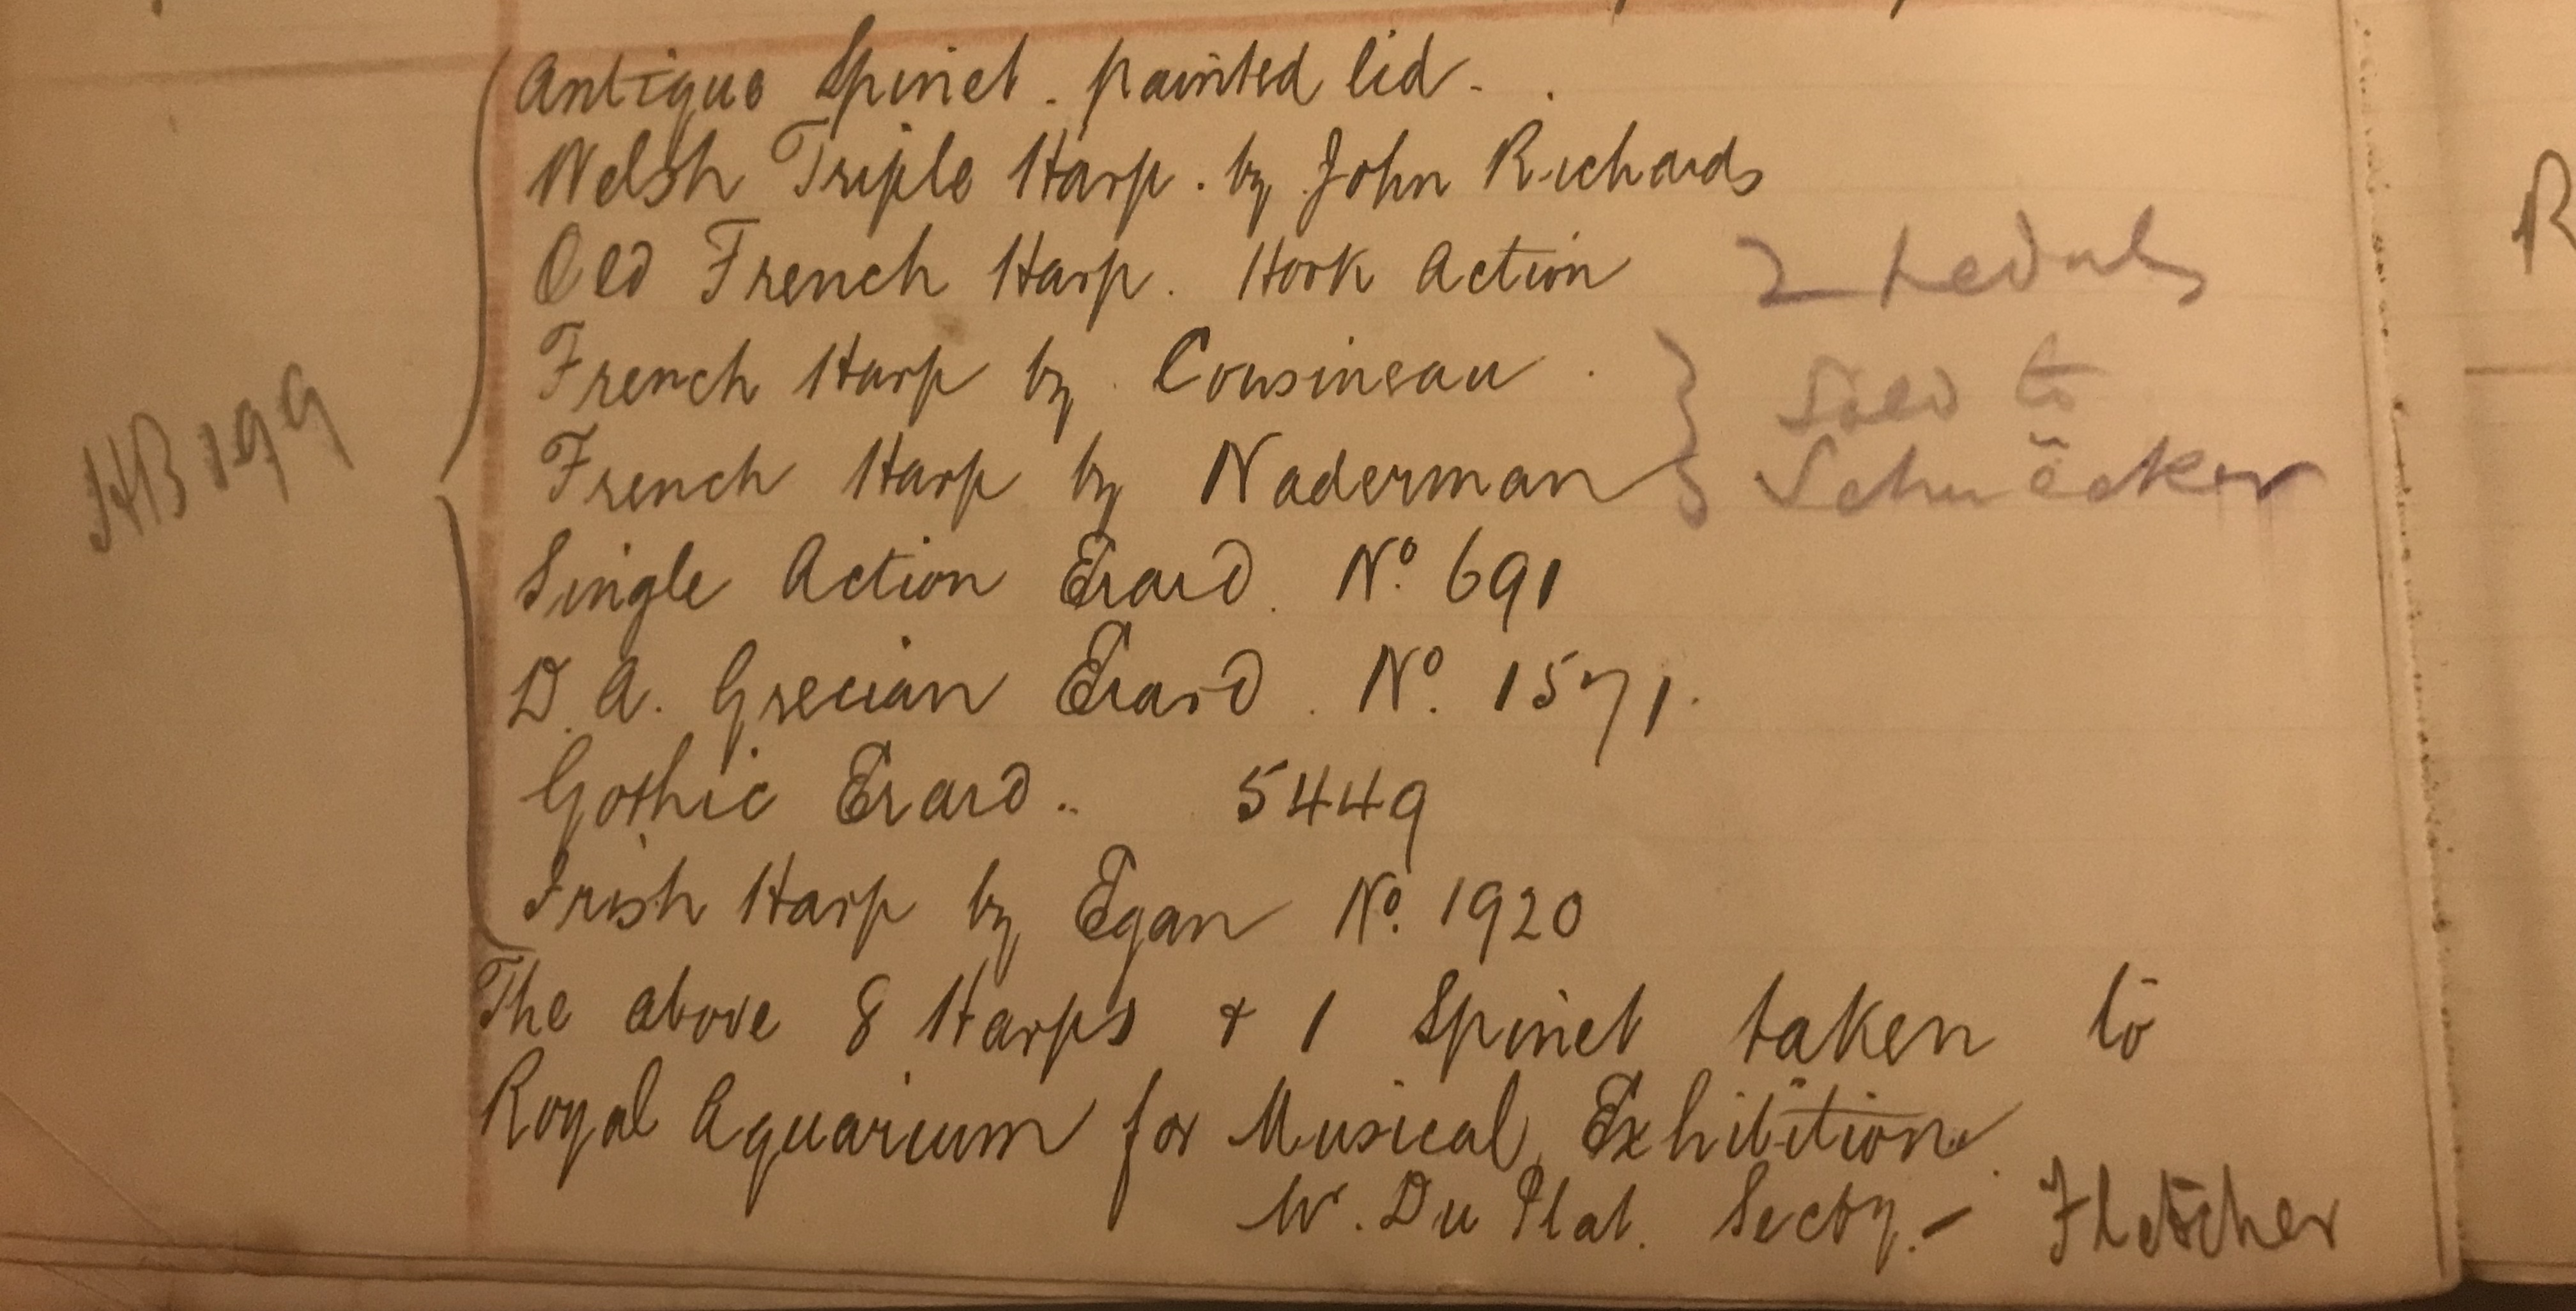 Antique Spinet. painted lid.
Welsh Triple Harp. by John Richards
Old French Harp. Hook Action 2 pedals
French Harp by Cousineau. } Sold to
HB 199
French Harp by Naderman
Single Action Erard. No. 691
D. A. Grecian Erard. No. 1571.
Gothic Erard.. 5449
Irish Harp by Egan No. 1920
The above 8 Harps & 1 Spinet taken to
Royal Aquarium for Musical Exhibition.
W. Du Plat. Secty. – Fletcher
R